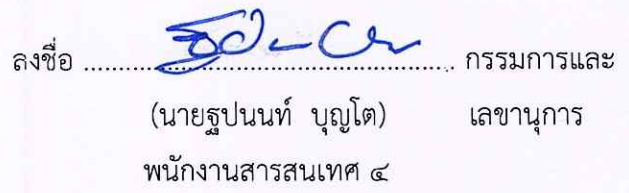 ลงชื่อ ........................................................ กรรมการและ
(นายฐปนนท์ บุญโต) เลขานุการ
พนักงานสารสนเทศ ๔